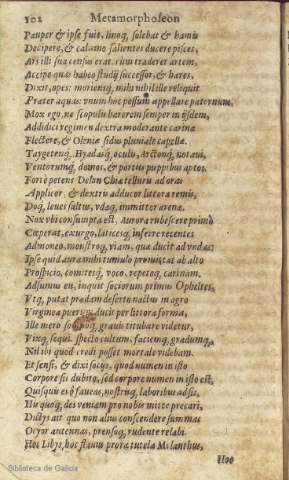 102 Metamorphoseon
Pauper & ipse fuit. linoq́, solebat & hamis
Decipere, & calamo salientes ducere pisces,
Ars illi sua census erat. cùm traderet artem,
Accipe quas habeo studij successor, & hæres,
Dixit, opes: moriensq́, mihi nihil ille reliquit
Præter aquas: vnum hoc possum appellare paternum.
Mox ego, ne scopulis hærerem semper in ijsdem,
Addidici regimen dextra moderante carinæ
Flectere, & Oleniæ sidus pluuiale capellæ.
Taygetenq́, Hyadasq́, oculis, Arctonq́, notaui,
Ventorumq́, domos, & portus puppibus aptos.
Fortè petens Delon Chiæ telluris ad oras
Applicor, & dextris adducor littora remis,
Doq́, leues saltus, vdæq́, immittor arenæ.
Nox vbi consumpta est, Aurora rubescere primò
Cœperat, exurgo, laticesq́, inferre recentes
Admoneo, monstroq́, viam, quæ ducat ad vndas:
Ipse quid aura mihi tumulo promittat ab alto
Prospicio, comitesq́, voco, repetoq́, carinam.
Adsumus en, inquit sociorum primus Opheltes,
Vtq́, putat prædam deserto nactus in agro
Virginea puerum ducit per littora forma,
Ille mero somnoq́, grauis titubare videtur,
Vixq́, sequi. specto cultum, faciemq́, gradumq́,
Nil ibi quod credi posset mortale videbam.
Et sensi, & dixi socijs, quod numen in isto
Corpore sit dubito, sed corpore numen in isto est,
Quisquis es ô faueas, nostrisq́, laboribus adsis,
His quoq́, des veniam pro nobis mitte precari,
Dictys ait quo non alius conscendere summas
Ocyor antennas, prensoq́, rudente relabi.
Hoc Libys, hoc flauus proræ tutela Melanthus,
Hoc
Biblioteca de Galicia